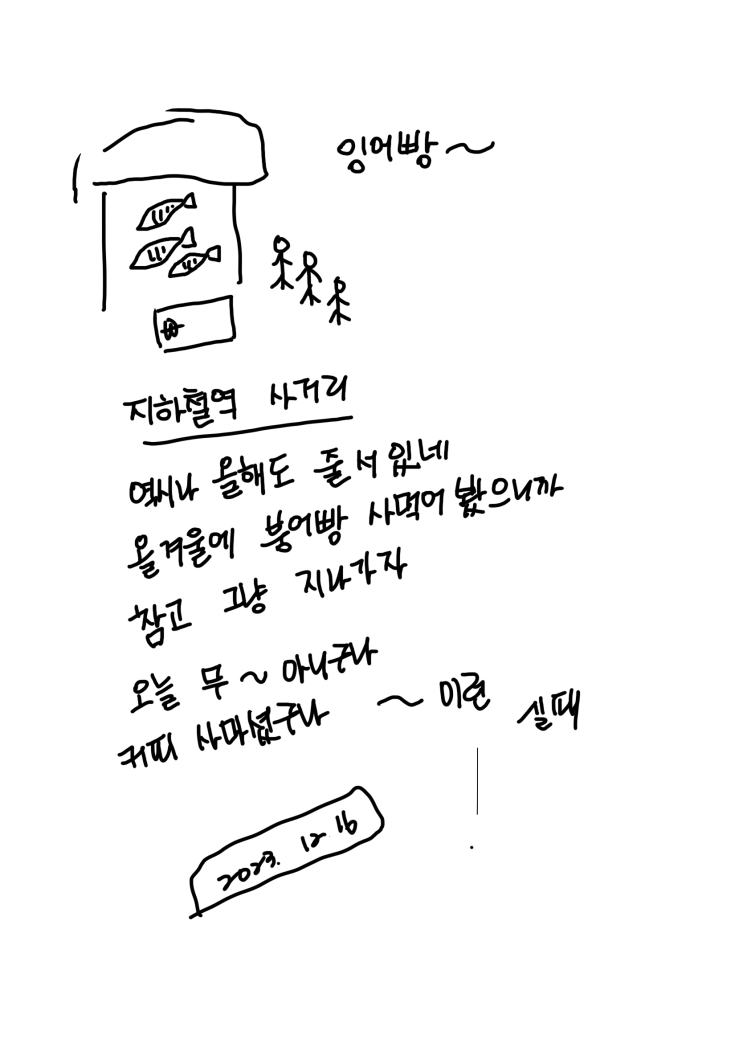 잉어빵~
지하철역 사거리
역시나 올해도 줄 서 있네
올겨울에 붕어빵 사먹어 봤으니까
참고 그냥 지나가자
오늘 무~ 아니구나
커피 사마셨구나 ~ 이런 실패
2023. 12 16